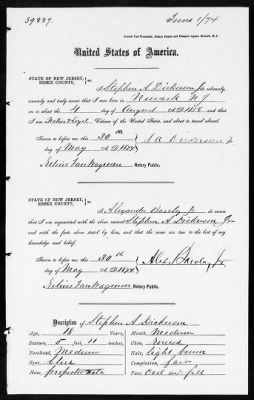 39889.
June 1/74
United States of America.
STATE OF NEW JERSEY,
ESSEX COUNTY.
I Stephen A. Dickerson Jr do solemnly,
sincerely and truly swear that I was born in Newark N J
on or about the 4 day of August A.D. 1856 and that
I am Native & Loyal Citizen of the United States, and about to travel abroad.
Sworn to before me, this 30 th
day of May A.D. 1874
S A Dickerson Jr
Notary Public.
STATE OF NEW JERSEY,
ESSEX COUNTY.
I Alexander Barclay Jr do swear
that I am acquainted with the above named Stephen A. Dickerson Jr
and with the facts above stated by him, and that the same are true to the best of my
knowledge and belief.
Sworn to before me, this 30 th
day of May A.D. 1874
Alex Barclay Jr.
Notary Public.
Description of Stephen A. Dickerson
Age, 18
Stature, 5 ft 11 inches
Forehead, Medium
Eyes, Blue
Nose,
Mouth, Medium
Chin, Round
Hair, light brown
Complexion, fair
Face, Oval and full